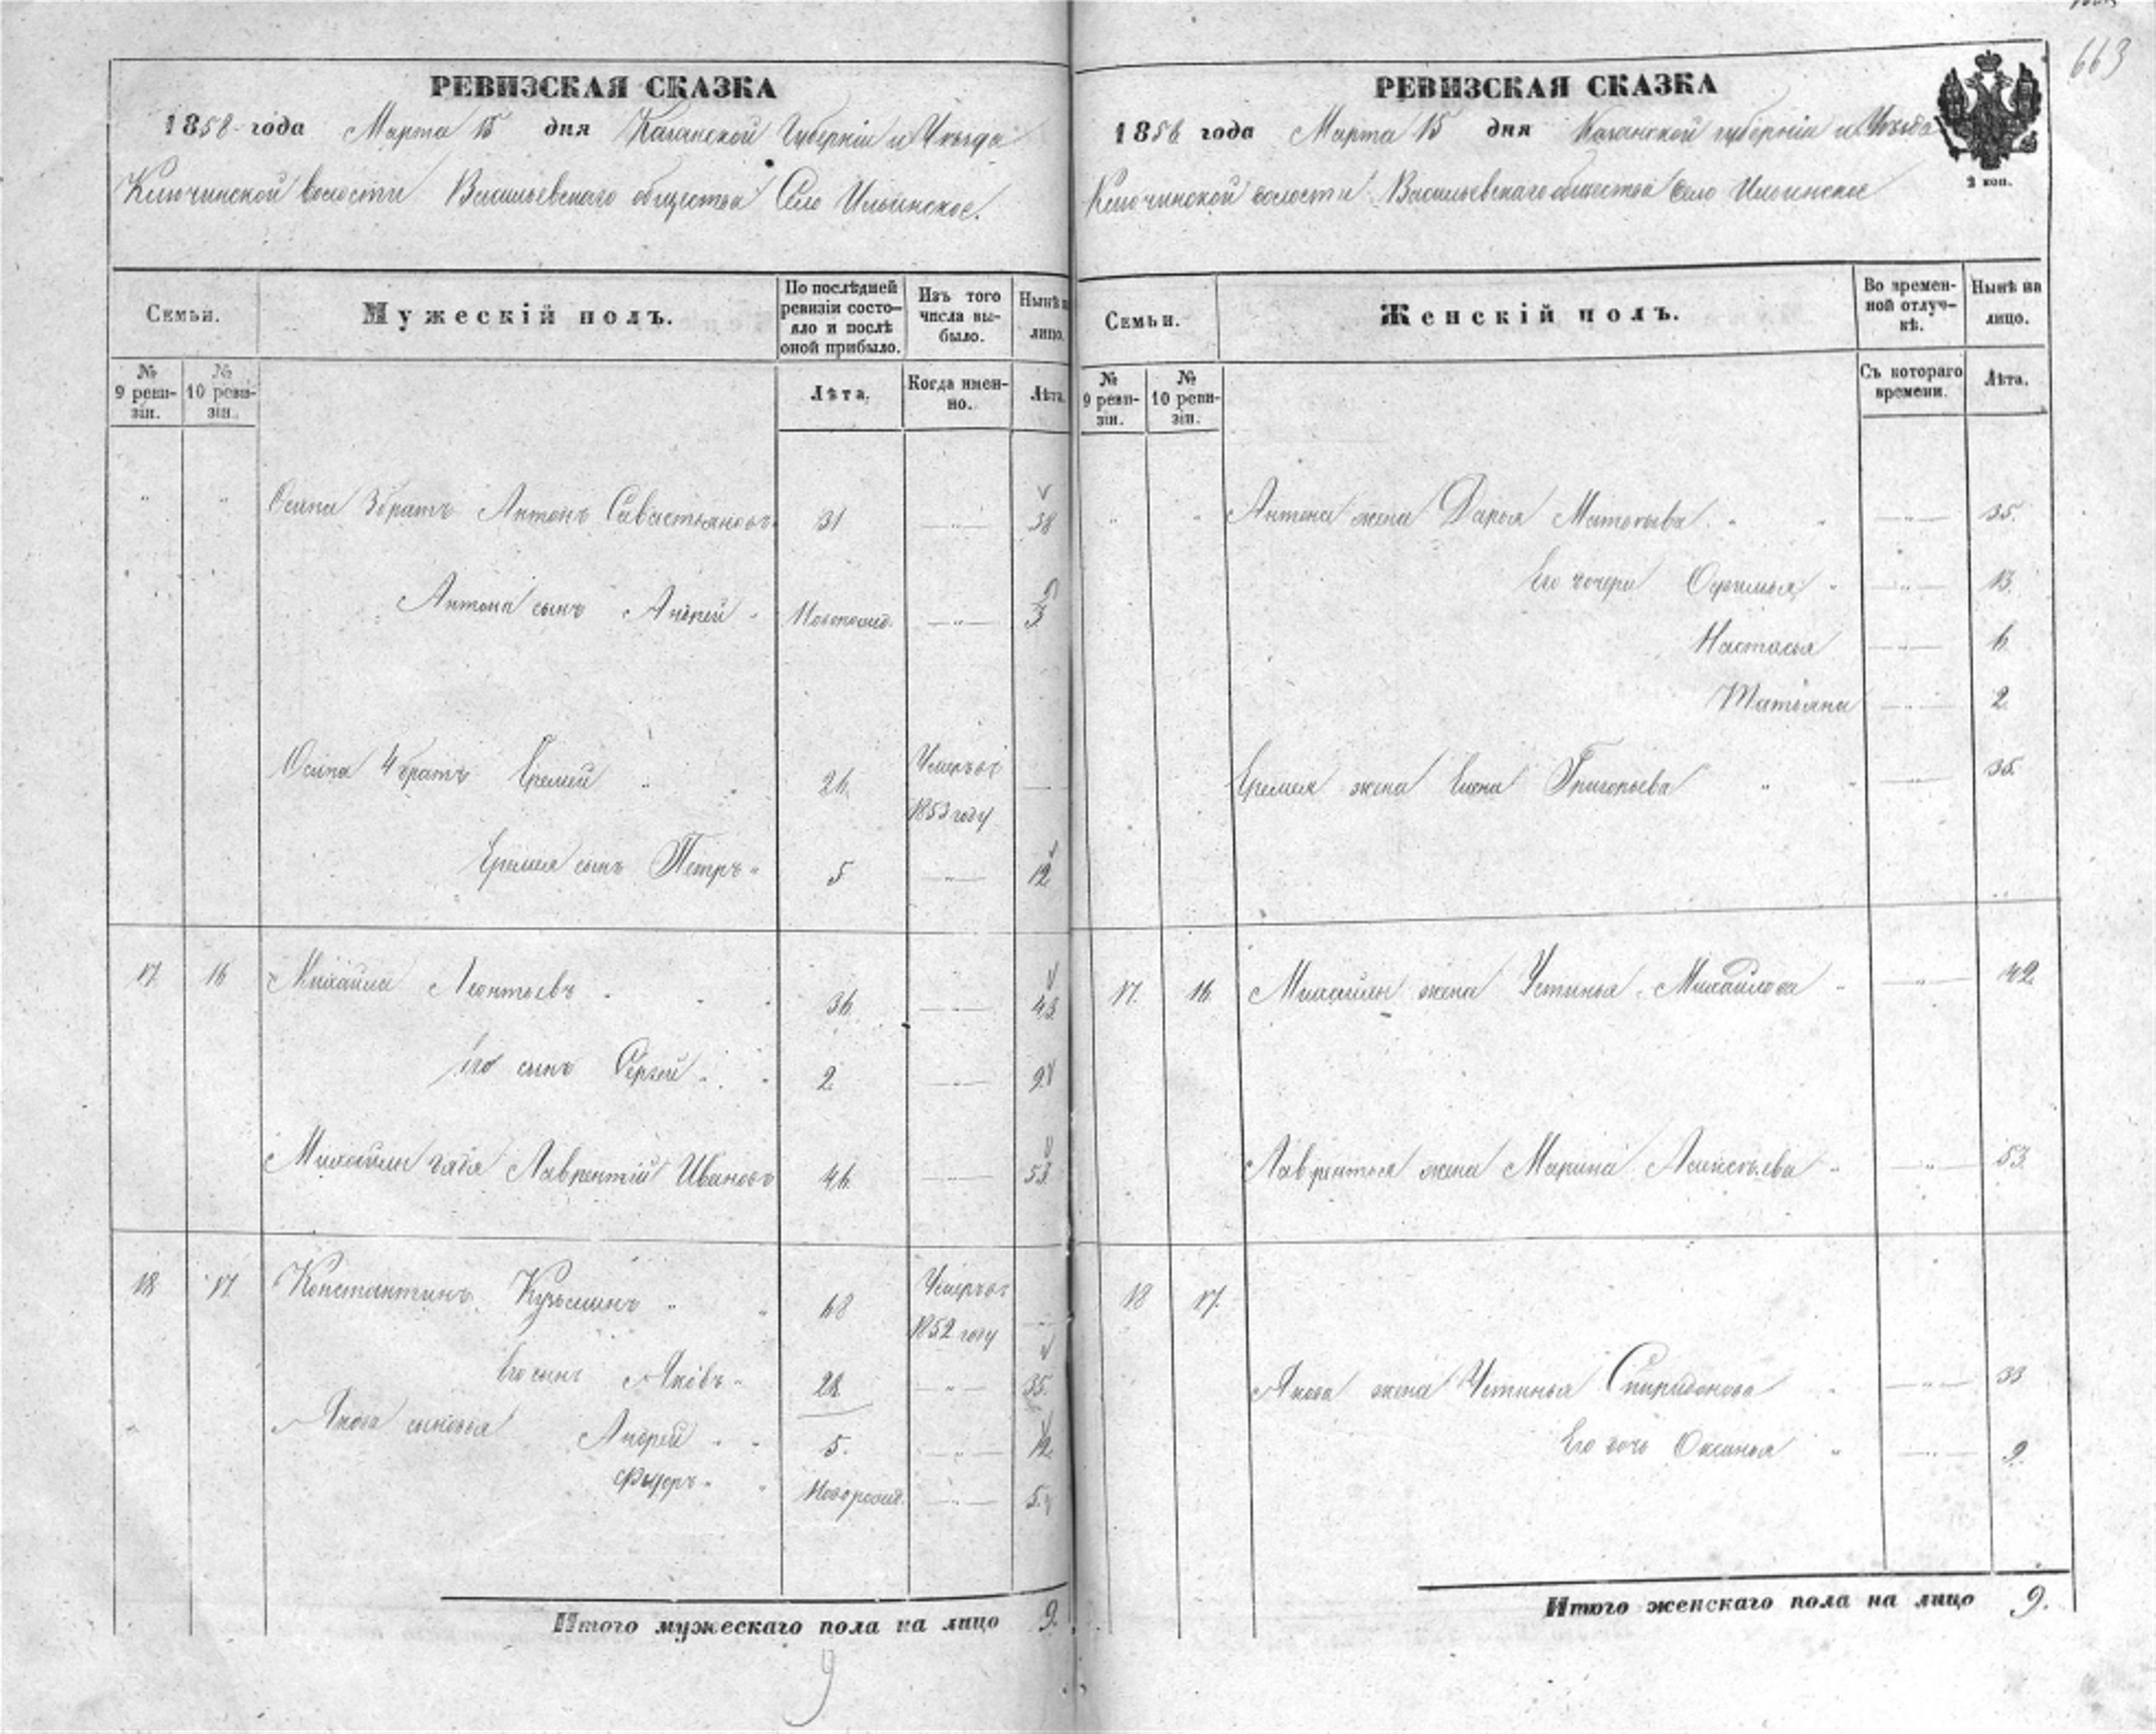 663
РЕВИЗСКАЯ СКАЗКА
1858 года Марта 15 дня Казанской Губерніи и Уѣзда
Ключинской волости Васильевскаго общества Село Ильинское.
Семьи.
Мужескій полъ.
По послѣдней ревизіи состо-
яло и послѣ
оной прибыло.
Изъ того
числа вы-
было.
Нынѣ на
лицо.
№
9 реви-
зіи.
№
10 реви-
зіи.
Лѣта.
Когда имен-
но.
Лѣта.
" " Осипа 3 братъ Антонъ Савастьяновъ 31 —"— 38
Антона сынъ Андрей " Новорожд. —"— 3
Осипа 4 братъ Еремей " " 26. Умеръ въ
1853 году
Еремея сынъ Петръ " 5 —"— 12
17. 16 Михайла Леонтьевъ 36. —"— 43.
его сынъ Сергей " " 2. —"— 9
Михайлы дядя Лаврентій Ивановъ 46. —"— 53.
18. 17. Константинъ Кузьминъ " " 68 Умеръ въ
1852 году
Его сынъ Яковъ " 28. —"— 35.
Якова сыновья Андрей " " 5. —"— 12.
Фыдоръ " " Новорожд. —"— 5.
Итого мужескаго пола на лицо 9.
9
РЕВИЗСКАЯ СКАЗКА
2 коп.
1858 года Марта 15 дня Казанской губерніи и Уѣзда
Ключинской волости Васильевскаго общества Село Ильинское
Семьи.
Женскій полъ.
Во времен-
ной отлуч-
кѣ.
Нынѣ на
лицо.
№
9 реви-
зіи.
№
10 реви-
зіи.
Съ котораго
времени.
Лѣта.
" " Антона жена Дарья Матвѣева " " —"— 35.
Его дочери " —"— 13.
Настасья —"— 6.
Татьяна —"— 2.
Еремея жена Елена Григорьева " " —"— 35.
17. 16. Михайлы жена Устинья Михайлова " —"— 42.
Лаврентья жена Марина " —"— 53.
18 17.
Якова жена Устинья Спиридонова " —"— 33
Его дочь Оксинья " —"— 9.
Итого женскаго пола на лицо 9.